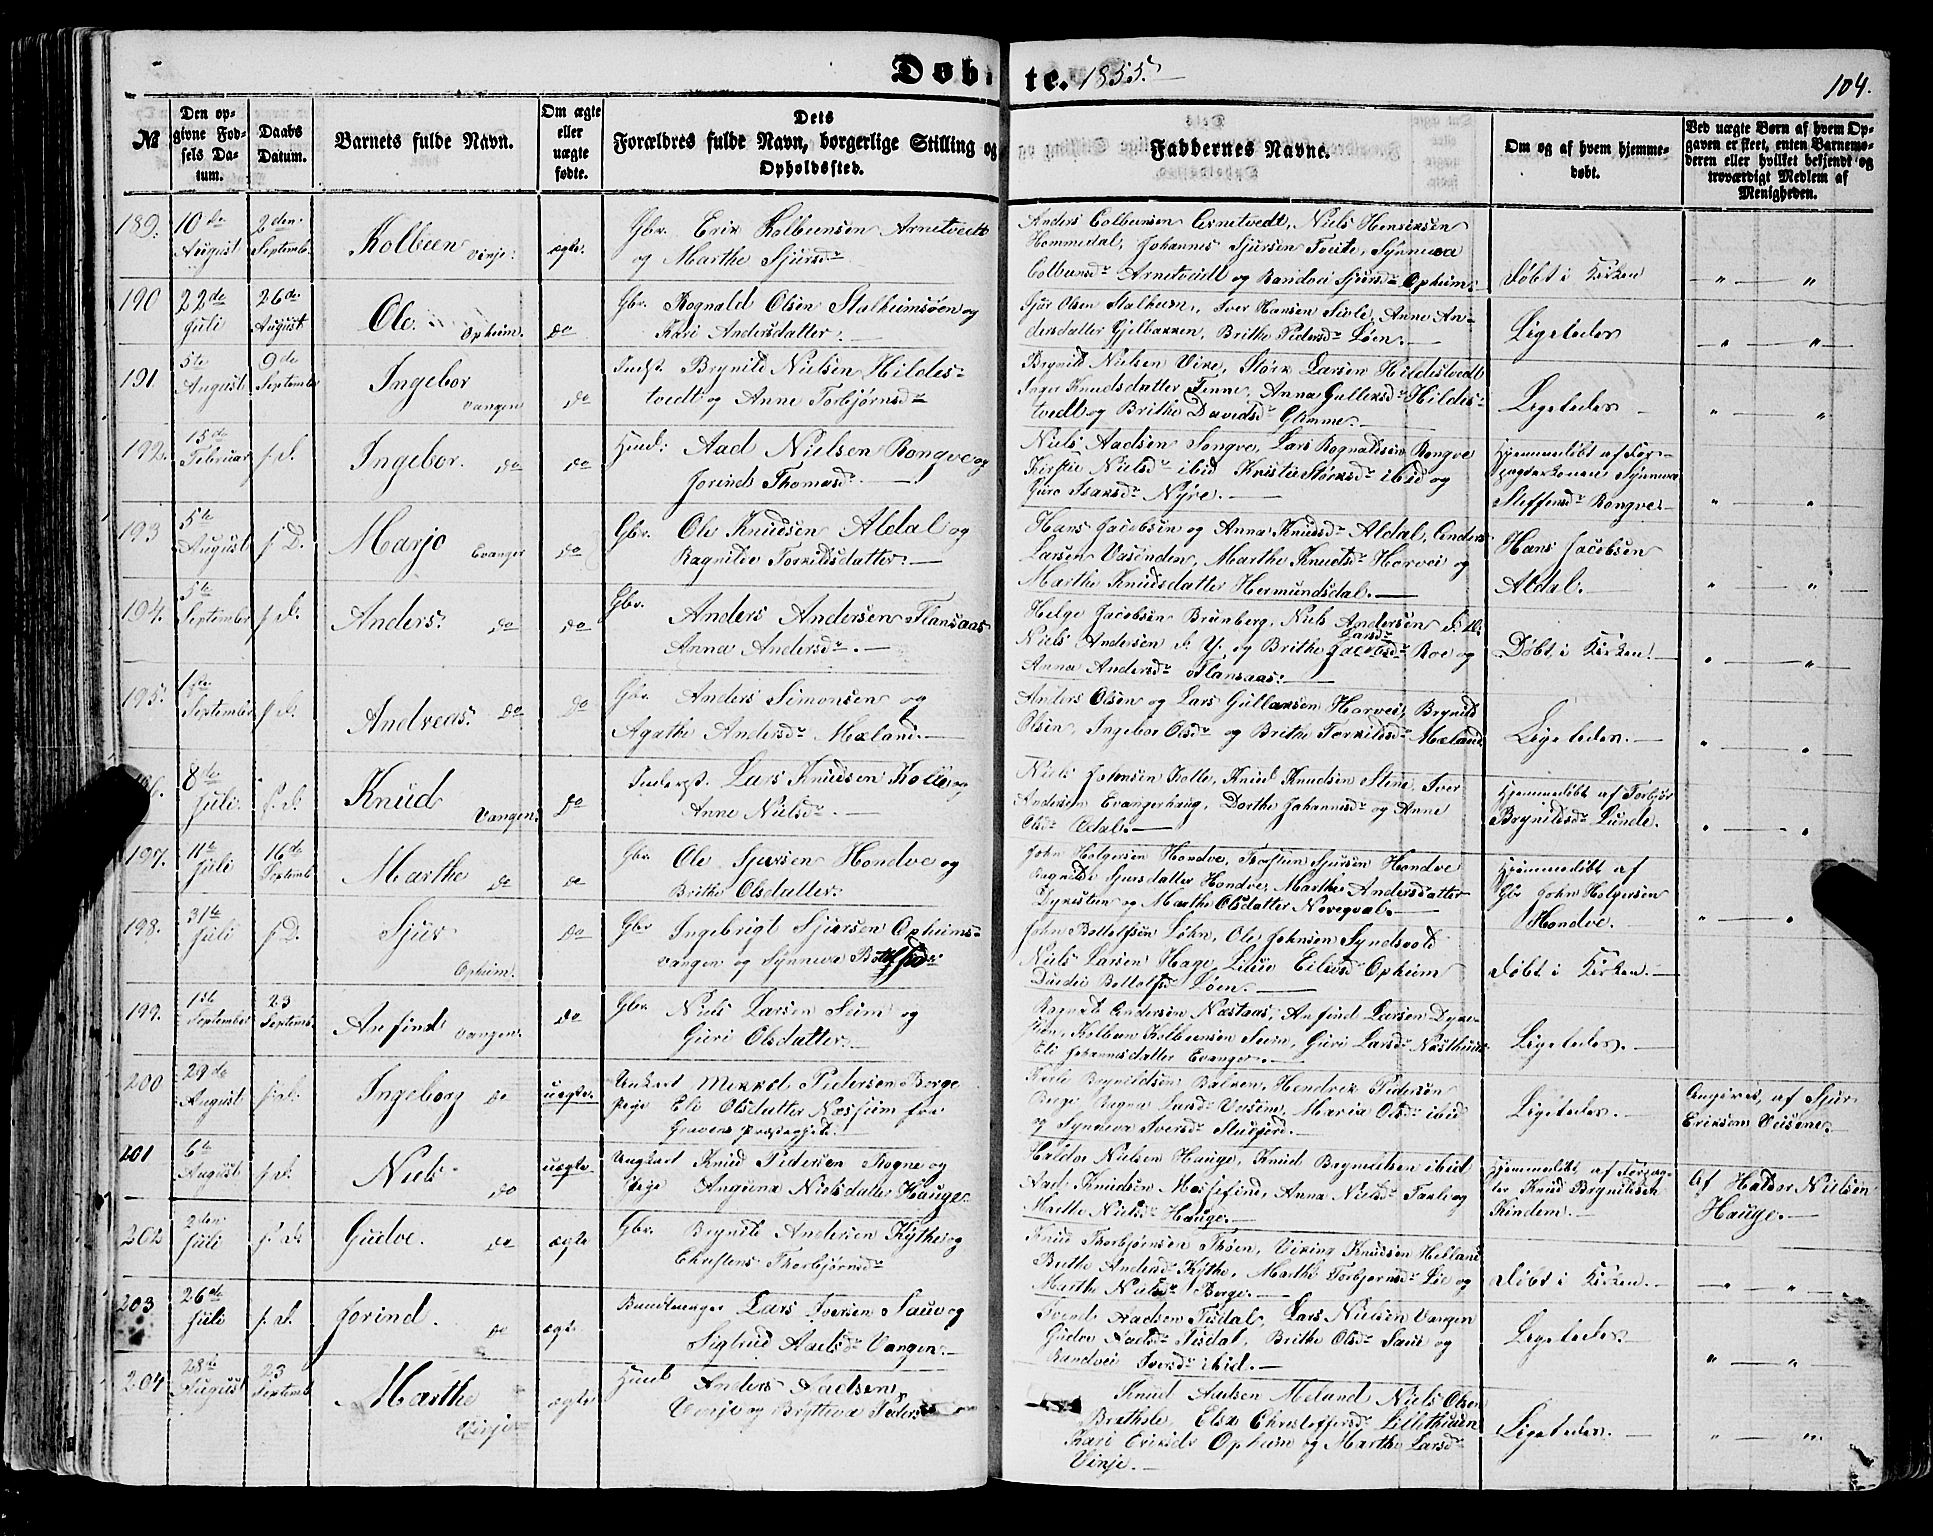 Døbte. 1855.
104.
№
Den opgivne Fødsels Datum.
Daabs Datum.
Barnets fulde Navn.
Om ægte eller uægte fødte.
Dets Forældres fulde Navn, borgerlige Stilling og Opholdssted.
Faddernes Navne.
Om og af hvem hjemmedøbt.
Ved uægte Børn af hvem Opgaven er skeet, enten Barnemoderen eller hvilket bekjendt og troværdigt Medlem af Menigheden.
189. 10de August 2den Septembr Kolbeen Vinje. ægte.
Gbr. Erik Kolbeensen Arnetvedt
og Marthe Sjursdr
Anders Colbensen Arnetvedt, Niels Henriksen
Hommedal, Johannes Sjursen Tveite, Synneva
Colbensdr Arnetvedt og Randvei Sjursdr Opheim.
Døbt i Kirken
190 22de Juli 26de August Ole Opheim. do
Gbr. Rognald Olsen Stalheimsøen og
Kari Andersdatter.
Sjur Olsen Stalheim, Iver Hansen Sivle, Anne An-
dersdatter Gjelbakken, Brithe Pedersdr Løen.
Ligeledes
191. 5te August 9de September Ingebor Vangen do
Indst. Brynild Nielsen Hildes-
tvedt og Anne Torbjørnsdr
Brynild Nielsen Vike, Størk Larsen Hildestvedt
Inger Knudsdatter Finne, Anna Gullersdr Hildes-
tvedt og Brithe Davidsdr Glimme.
Ligeledes
192. 15de Februar s. D. Ingebor. do do
Huusd: Aad Nielsen Rongve og
Jorind Thomasdr
Niels Aadsen Songve, Lars Rognaldsen Rongve
Kirstie Nielsdr ibid Kristie Størksdr ibid og
Guro Isaksdr Nyre.
Hjemmedøbt af For-
Synneva
Steffensdr Rongve
193 5te August s. D. Marjo Evanger do
Gbr. Ole Knudsen Aldal og
Ragnilde Torkildsdatter.
Hans Jacobsen og Anna Knudsdr Aldal, Anders
Larsen Vasenden, Marthe Knudsdr Horvei og
Marthe Knudsdatter Hermundsdal.
Hans Jacobsen
Aldal.
194. 5te September s. D. Anders. do do
Gbr. Anders Andersen Flansaas
Anna Andersdr.
Helge Jacobsen Brunberg, Niels Andersen d. Æ.
Niels Andersen d. Y. og Brithe Larsdr Roe og
Anna Andersdr Flansaas.
Døbt i Kirken.
195. 1ste September s. D. Andreas. do do
Gbr. Anders Simonsen og
Agathe Andersdr Mæland.
Anders Olsen og Lars Gullaksen Horvei, Brynild
Olsen, Ingebor Olsdr og Brithe Torkildsdr Mæland
Ligeledes.
8de Juli. s. D. Knud Vangen. do
Inderst. Lars Knudsen Kolle og
Anne Nielsdr.
Niels Johnsen Kolle, Knud Knudsen Stine, Iver
Andersen Evangerhaug, Dorthe Johannesdr og Anne
Olsdr Ædal.
Hjemmedøbt af Torbjør
Brynildsdr Lunde.
197. 11te Juli 16de Septemb. Marthe do do
Gbr. Ole Sjursen Hondve og
Brithe Olsdatter.
John Holgersen Hondve, Torsten Sjursen Hondve
Ragnilde Sjursdatter Hondve, Marthe Andersdatter
Dykesten og Marthe Olsdatter Noreqval.
Hjemmedøbt af
Gbr John Holgersen
Hondve.
198. 31te Juli s. D. Sjur Opheim. do
Gbr Ingebrigt Sjursen Opheims-
vangen og Synneva Botolfsdr
John Bottolfsen Løhn, Ole Johnsen Syndsvold
Niels Larsen Hage, Eilevsdr Opheim
Durdei Bottolfsdr Løen.
Døbt i Kirken.
199. 1ste September 23 Septemb. Anfind Vangen. do
Gbr. Niels Larsen Seim og
Guri Olsdatter.
Andersen Næstaas, Anfind Larsen Dyke-
sten, Kolbein Kolbeinsen Seim, Guri Larsdr Næsthuus
Eli Johannesdatter Evanger.
Ligeledes.
200 29de August s. D. Ingeborg do uægte.
Unkart Mikkel Pedersen Berge
Pige Eli Olsdatter Næsheim fra
Gravens Præstegjeld.
Brynildsen Balken, Hendrik Pedersen
Berge Larsdr Veseim, Maria Olsdr ibid
og Synneva Iversdr Studgjerd.
Ligeledes.
Angivet af Sjur
Eriksen Veisene.
201 6te August s. D. Niels do uægte
Ungkart Knud Pedersen Rogne og
Pige Anguna Nielsdatter Hauge.
Haldor Nielsen Hauge, Knud Brynildsen ibid
Aad Knudsen Mossefind, Anna Nielsdr og
Marthe Nielsdr Hauge.
Hjemmedøbt af
Knud Brynildsen
Kindem.
Af Haldor Nielsen
Hauge.
202 2den Juli s. D. Gudve. do ægte
Gbr. Brynild Andersen Kythe og
Christense Thorbjørnsdr
Knud Thorbjørnsen Møen, Viking Knudsen Helland
Brithe Andersdr Kythe, Marthe Torbjørnsdr Lie og
Marthe Nielsdr Berge.
Døbt i Kirken.
203 26de Juli s. D. Jorind. do ægte
Lars Iversen Saue og
Sigtrud Aadsdr Vangen.
Svend Aadsen Tisdal, Lars Nielsen Vangen
Gudve Aadsdr Tisdal, Brithe Olsdr Saue og
Randvei Iversdr ibid.
Ligeledes
204 28de August 23 Septemb. Marthe Vinje ægte
Huusd Anders Aadsen
Vinje og Brytteva Peders
Knud Aadsen Meland, Niels Olsen
Elsa Christofersdr Lillethuun
Kari Eriksdr Opheim og Marthe Larsdr
Vinje.
Ligeledes.